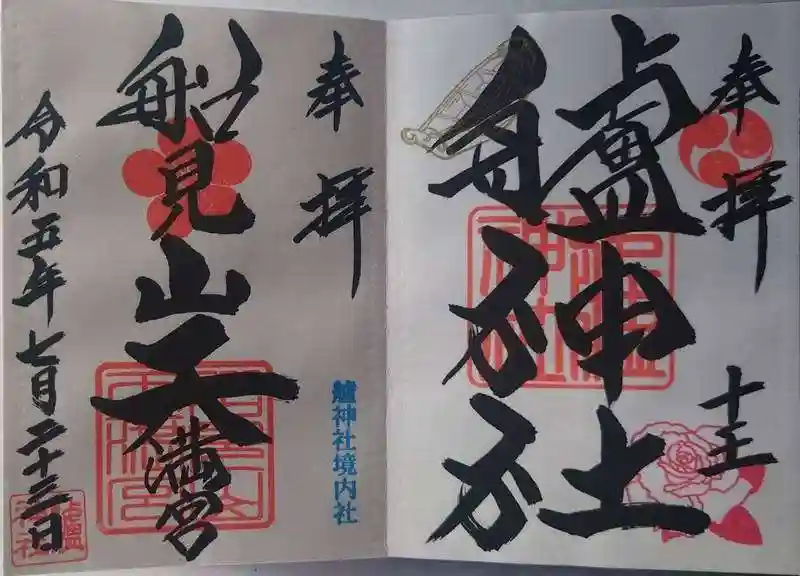 奉拝
十王
艫神社
奉拝
艫神社境内社
船見山天満宮
令和五年七月二十三日